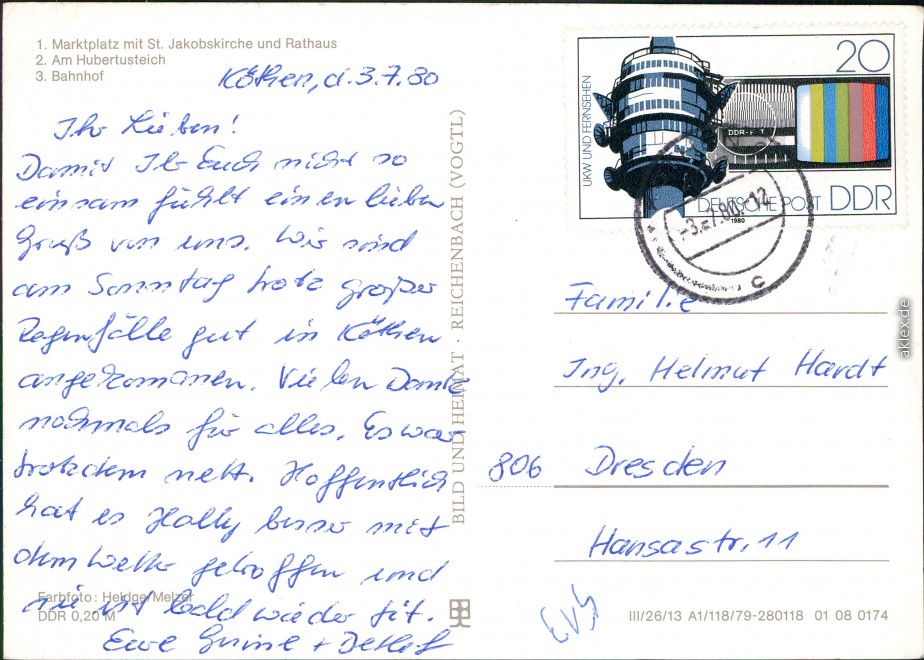 1. Marktplatz mit St. Jakobskirche und Rathaus
2. Am Hubertusteich
3. Bahnhof
Köthen, d. 3.7.80
Ihr Lieben!
Damit Ihr Euch nicht so
einsam fühlt einen lieben
Gruß von uns. Wir sind
am Sonntag trotz großer
Regenfälle gut in Köthen
angekommen. Vielen Dank
nochmals für alles. Es war
trotzdem nett. Hoffentlich
hat es Hally besser mit
dem Wetter getroffen und
sie ist bald wieder fit.
Eure + Detlef
Farbfoto: Heldge/Melzer
DDR 0,20 M
BILD UND HEIMAT · REICHENBACH (VOGTL)
UKW UND FERNSEHEN
20
DDR-F
DEUTSCHE POST DDR
1980
-3.-7.80.-12
c
Familie
Ing. Helmut Hardt
806 Dresden
Hansastr. 11
III/26/13 A1/118/79-280118 01 08 0174
aklex.de